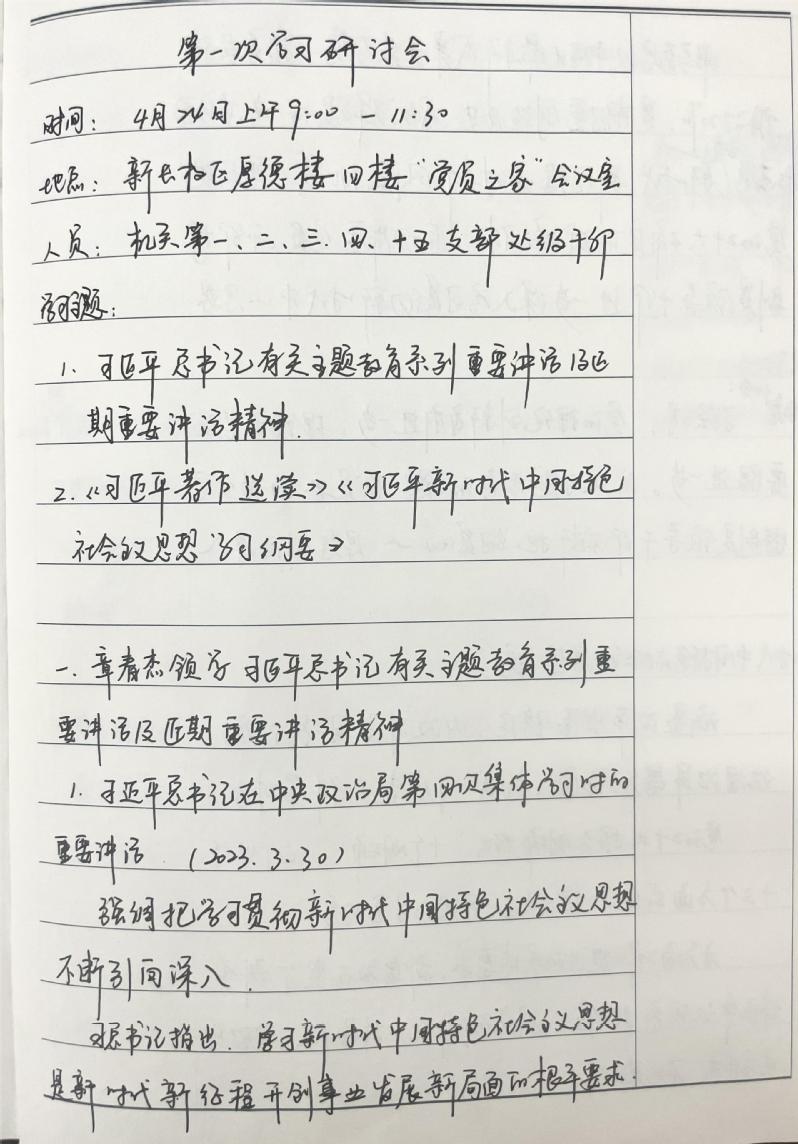 第一次学习研讨会
时间: 4月24日上午9:00 — 11:30
地点: 新长校区厚德楼四楼"党员之家"会议室
人员: 机关第一、二、三、四、十五支部处级干部
学习题:
1. 习近平总书记有关主题教育系列重要讲话及近
期重要讲话精神.
2.《习近平著作选读》《习近平新时代中国特色
社会主义思想学习纲要》
一. 章春杰领学习近平总书记有关主题教育系列重
要讲话及近期重要讲话精神
1. 习近平总书记在中央政治局第四次集体学习时的
重要讲话 (2023.3.30)
强调把学习贯彻新时代中国特色社会主义思想
不断引向深入.
习总书记指出. 学习新时代中国特色社会主义思想
是新时代新征程开创事业发展新局面的根本要求.